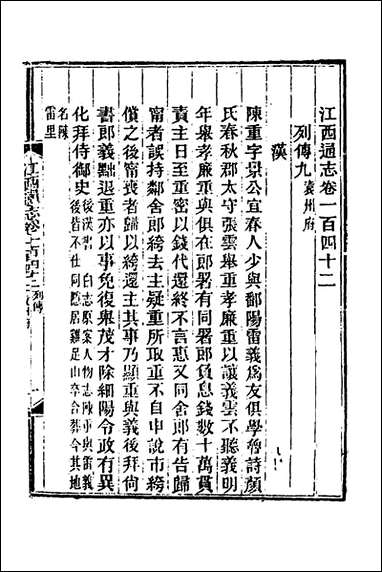 江西通志卷一百四十二
列傳九袁州府
漢
陳重字景公宜春人少與鄱陽雷義爲友俱學魯詩顏
氏春秋郡太守張雲舉重孝廉重以讓義雲不聽義明
年舉孝廉重與俱在郎署有同署郎負息錢數十萬貰
責主日至重密以錢代還終不言惠又同舍郎有告歸
甯者誤持鄰舍郎絝去主疑重所取重不自申說市絝
償之後甯喪者歸以絝還主其事乃顯重與義後拜尚
書郎義黜退重亦以事免復舉茂才除細陽令政有異
化拜侍御史後漢書 白志原案人物志陳重與雷義
後皆不仕同隱居雞足山卒合葬今其地
名陳
雷里
江西通志卷一百四十二列傳